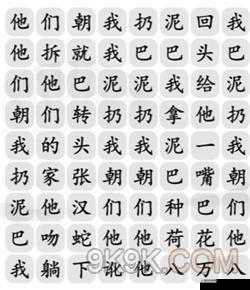 他们朝我扔泥回我
他拆就我巴巴头巴
们他巴泥泥我给泥
朝们转扔扔拿他扔
我的头我我泥一我
扔家张朝朝巴嘴朝
泥他汉们们种巴们
巴吻蛇他他荷花他
我躺下讹他八万八
9K9K.COM